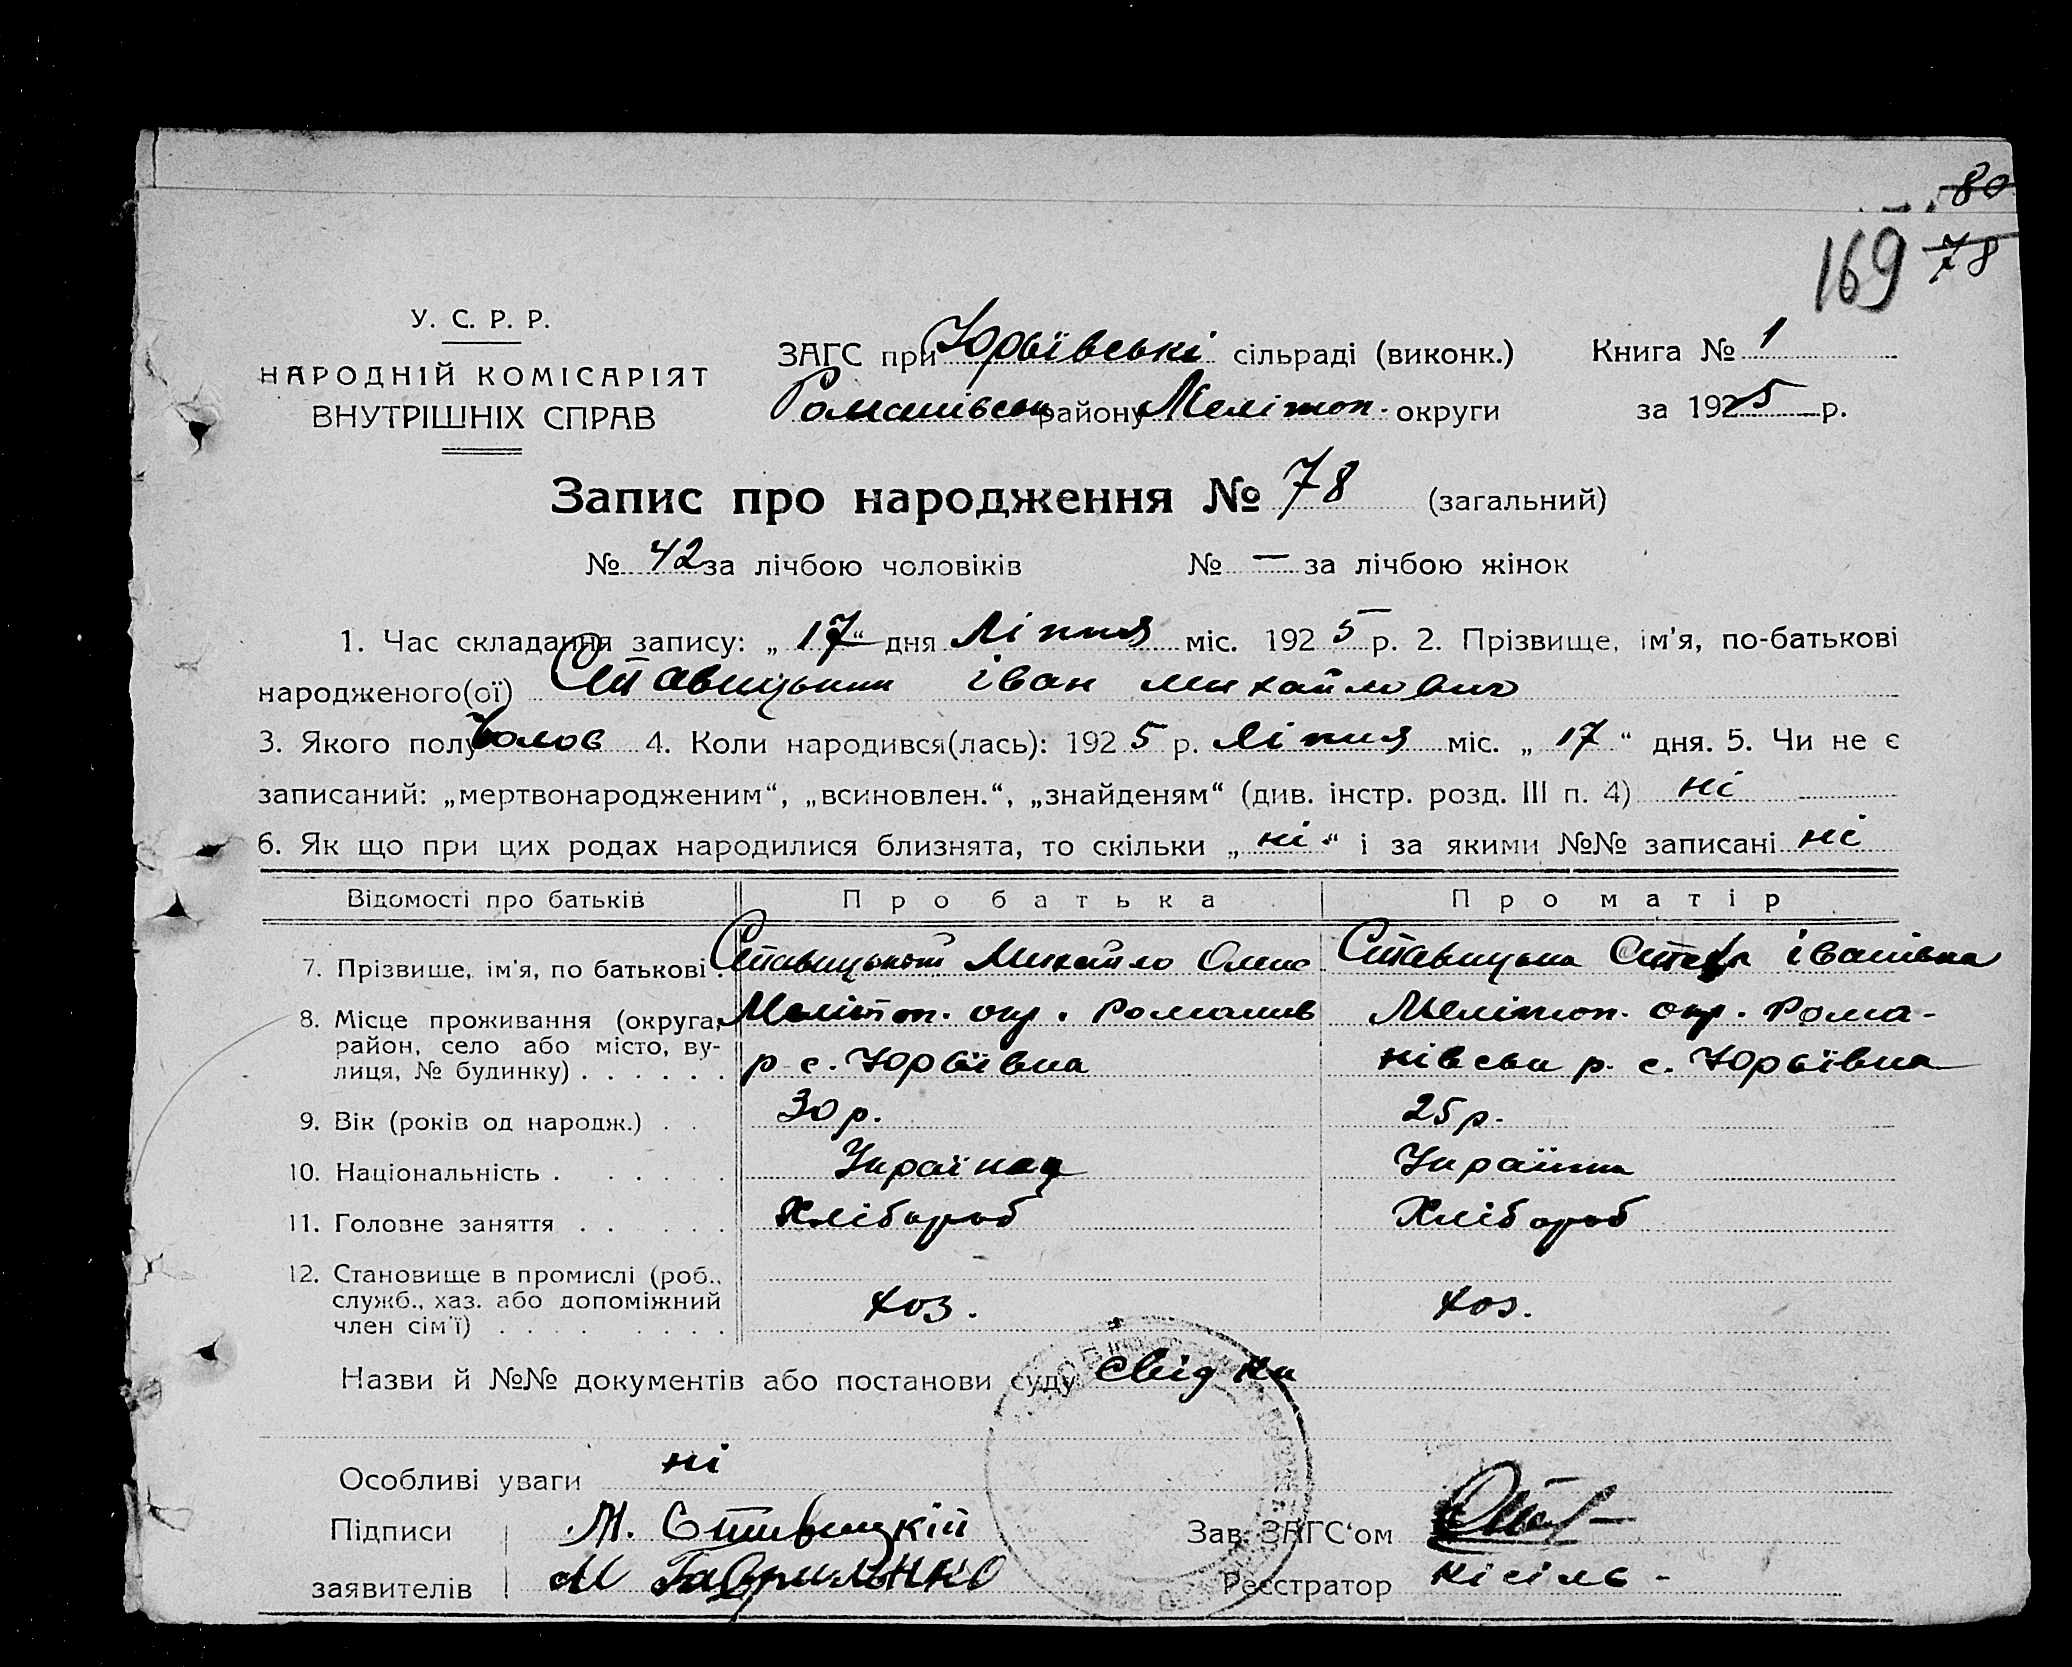 80
169 78
У. С. Р. Р.
НАРОДНІЙ КОМІСАРІЯТ
ВНУТРІШНІХ СПРАВ
ЗАГС при Юрьївські сільраді (виконк.) Книга № 1
Романівськ району Мелітоп. округи за 1925 р.
Запис про народження № 78 (загальний)
№ 42 за лічбою чоловіків № — за лічбою жінок
1. Час складання запису: „ 17 “ дня Ліпня міс. 1925 р. 2. Прізвище, ім'я, по-батькові
народженого(ої) Ставицький іван михайлович
3. Якого полу Чолов 4. Коли народився(лась): 1925 р. Ліпня міс. „ 17 “ дня. 5. Чи не є
записаний: „мертвонародженим“, „всиновлен.“, „знайденям“ (див. інстр. розд. III п. 4) ні
6. Як що при цих родах народилися близнята, то скільки „ ні “ і за якими №№ записані ні
Відомості про батьків Про батька Про матір
7. Прізвище, ім'я, по батькові Ставицький Михайло Ставицька івановна
8. Місце проживання (округа, район, село або місто, вулиця, № будинку) . . . . . . Мелітоп. окр. Романив Мелітоп. окр. Рома-
р с. Юрьївка нівськ р. с. Юрьївка
9. Вік (років од народж.) . . 30 р. 25 р.
10. Національність . . . . . . Українец Українка
11. Головне заняття . . . . . Хлібороб Хлібороб
12. Становище в промислі (роб., служб., хаз. або допоміжний член сім'ї) . . . . . . . . хоз. хоз.
Назви й №№ документів або постанови суду свідки
Особливі уваги ні
Підписи М. Ставицкій Зав. ЗАГС‘ом
заявителів М Гаврильнко Реєстратор кісіль -